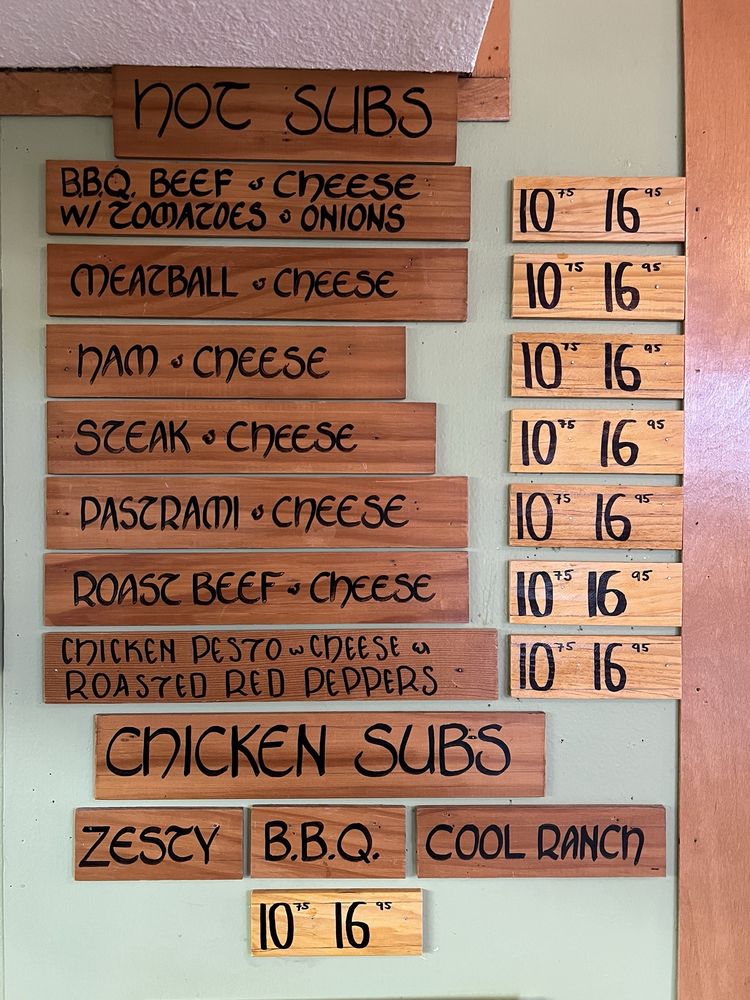 HOT SUBS
B.B.Q. BEEF & CHEESE 10 75 16 95
W/ TOMATOES & ONIONS
MEATBALL & CHEESE 10 75 16 95
HAM & CHEESE 10 75 16 95
STEAK & CHEESE 10 75 16 95
PASTRAMI & CHEESE 10 75 16 95
ROAST BEEF & CHEESE 10 75 16 95
CHICKEN PESTO w CHEESE & 10 75 16 95
ROASTED RED PEPPERS
CHICKEN SUBS
ZESTY B.B.Q. COOL RANCH
10 75 16 95